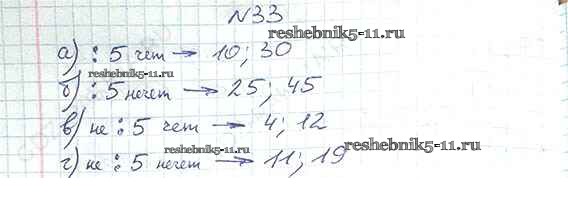 №33
reshebnik5-11.ru
а) ⋮ 5 чет → 10; 30
reshebnik5-11.ru
б) ⋮ 5 нечет → 25; 45
в) не ⋮ 5 чет → 4; 12
reshebnik5-11.ru
г) не ⋮ 5 нечет → 11; 19
reshebnik5-11.ru